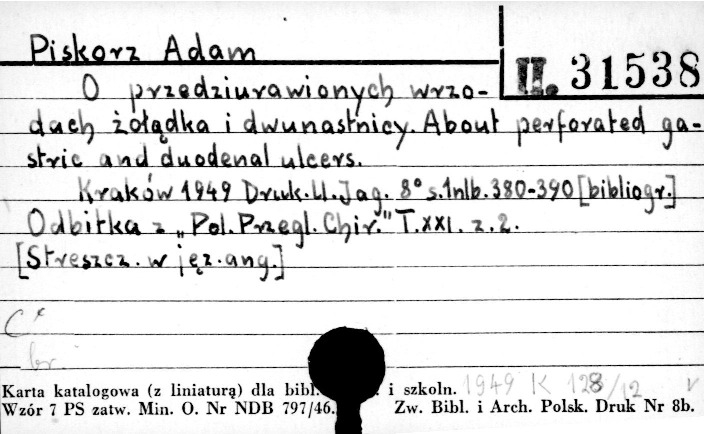 Piskorz Adam
II. 31538
O przedziurawionych wrzo-
dach żołądka i dwunastnicy. About perforated ga-
stric and duodenal ulcers.
Kraków 1949 Druk. U. Jag. 8° s. 1nlb. 380-390 [bibliogr.]
Odbitka z „Pol. Przegl. Chir." T. XXI. z. 2.
[Streszcz. w jęz. ang.]
br.
Karta katalogowa (z liniaturą) dla bibl. i szkoln. 1949 K 128/12
Wzór 7 PS zatw. Min. O. Nr NDB 797/46. Zw. Bibl. i Arch. Polsk. Druk Nr 8b.